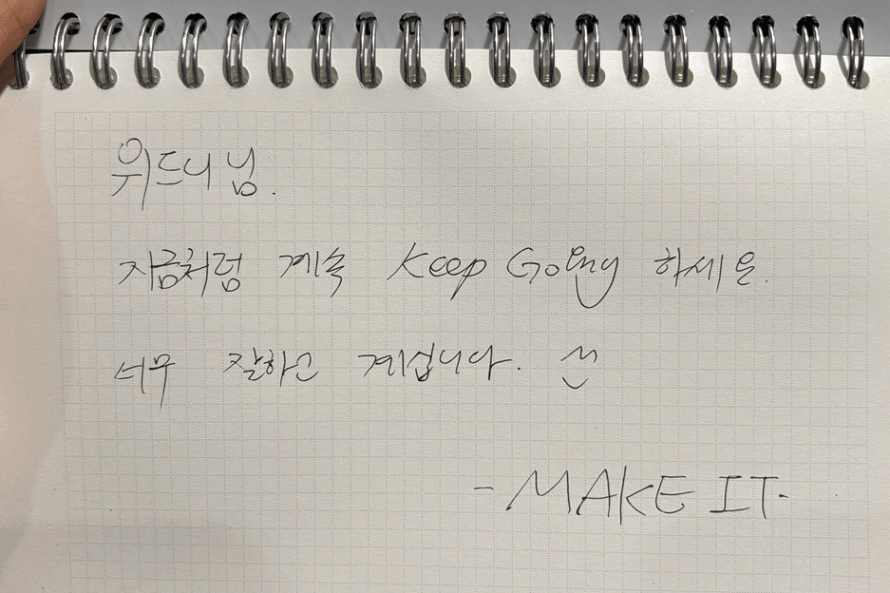 위드니 님.
지금처럼 계속 Keep Going 하세요.
너무 잘하고 계십니다.
- MAKE IT -